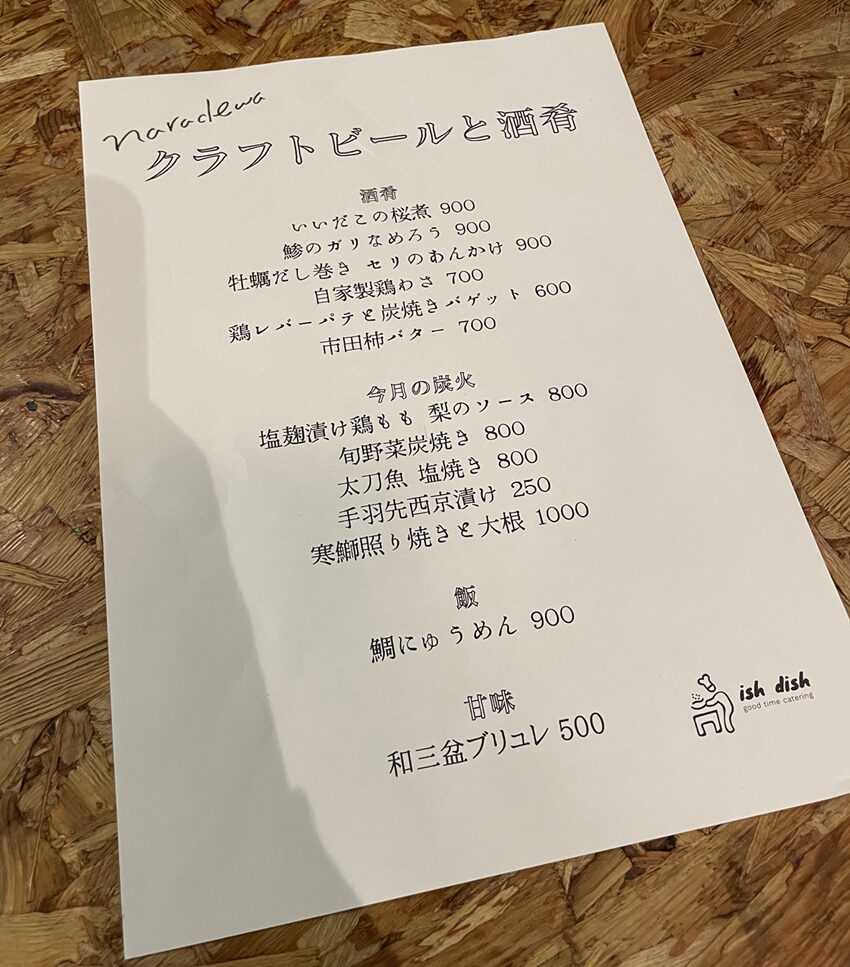 naradewa
クラフトビールと酒肴
酒肴
いいだこの桜煮 900
鯵のガリなめろう 900
牡蠣だし巻き セリのあんかけ 900
自家製鶏わさ 700
鶏レバーパテと炭焼きバゲット 600
市田柿バター 700
今月の炭火
塩麹漬け鶏もも 梨のソース 800
旬野菜炭焼き 800
太刀魚 塩焼き 800
手羽先西京漬け 250
寒鰤照り焼きと大根 1000
飯
鯛にゅうめん 900
甘味
和三盆ブリュレ 500
ish dish
good time catering